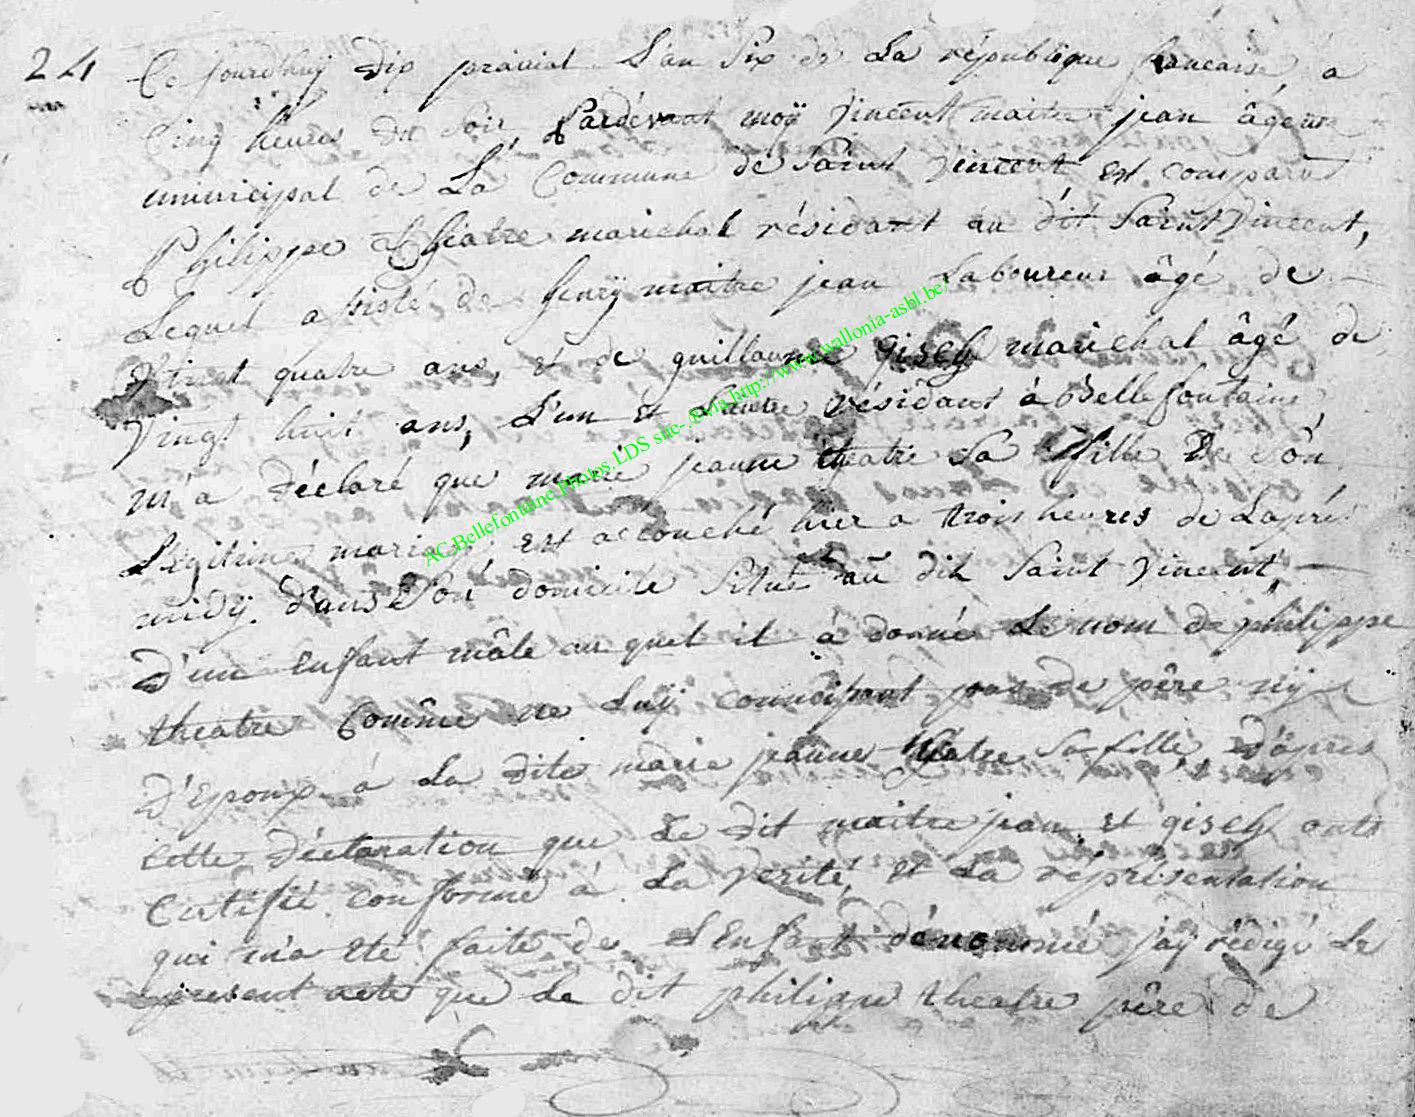 24 Ce jourdhuÿ dix prairial L'an Six de La république francaise à
Cinq heures du soir, Pardevant moÿ Vincent maitre jean âgent
municipal de La Commune de Saint Vincent est comparut
Philippe Theatre marichal résidant au dit Saint Vincent,
Lequel assisté de henrÿ maitre jean Laboureur âgé de
Vingt quatre ans, et de guillaume gisch marichal âgé de
Vingt huit ans, L'un et L'autre résidant à Bellefontaine,
m'a déclaré que marie jeanne theatre sa fille De són
Légitime mariage, est accouché hier a trois heures de Laprés
midÿ. dans són domicile Situé au dit Saint Vincent,
D'un Enfant mâle au quel il à donné Le nom de philippe
theatre Comme ne Luÿ connoissant pas de pêre nÿ
D'Epoux à La dite marie jeanne theatre Sa fille, D'àpres
cette déclaration que Le dit maitre jean et gisch onts
Certifié conforme à La verité, et La représentation
qui m'a eté faite de L'Enfant dénommé j'aÿ rédigé Le
present acte que Le dit philippe theatre pêre de
AC.Bellefontaine.Photos.LDS site- http://www.wallonia-asbl.be/